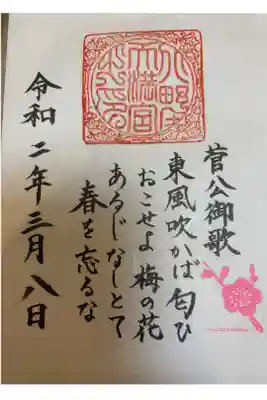 菅公御歌
東風吹かば匂ひ
おこせよ梅の花
あるじなしとて
春を忘るな
令和二年三月八日